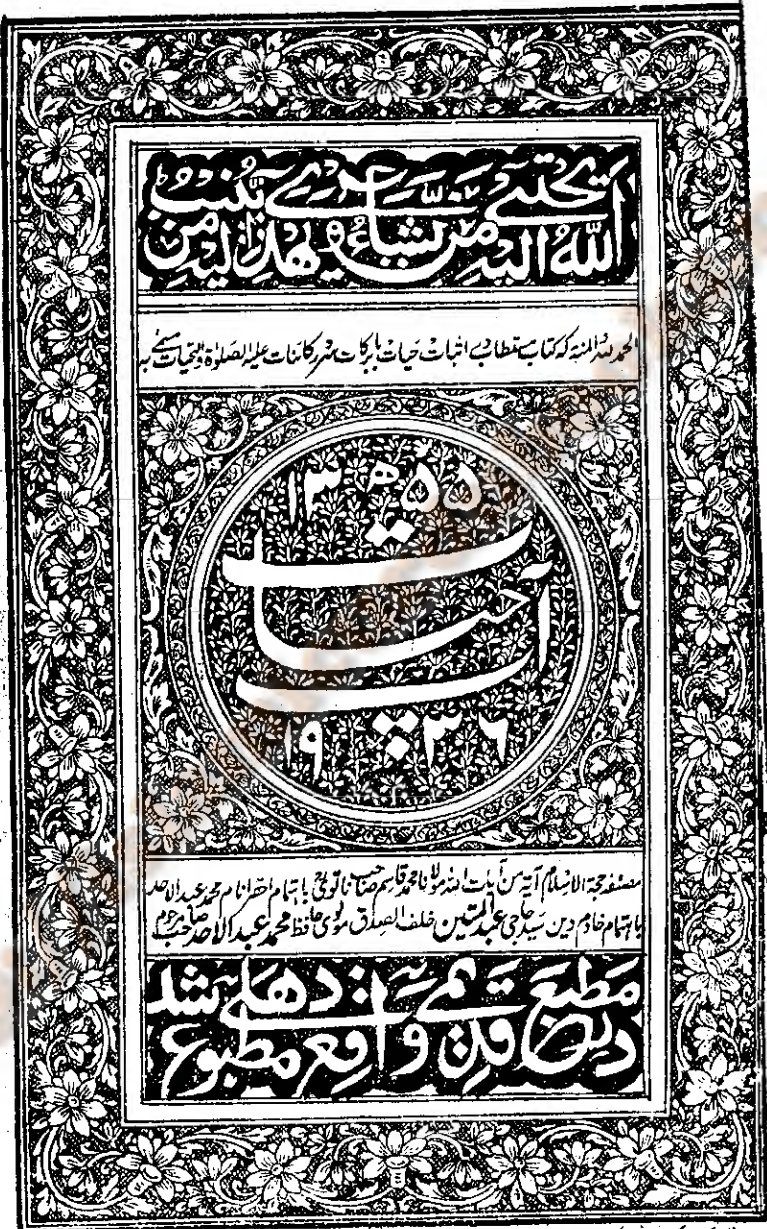 اللّٰهُ يَجْتَبِيْ اِلَيْهِ مَنْ يَّشَآءُ وَيَهْدِيْ اِلَيْهِ مَنْ يُّنِيْبُ
الحمد للہ المنہ کہ کتاب مستطاب در اثبات حیات بابرکات سرور کائنات علیہ الصلوٰۃ والتحیات مسمیٰ بہ
۱۳۵۵ھ
آب حیات
۱۹۳۶
مصنفہ حجۃ الاسلام آیۃ من آیات اللہ مولانا محمد قاسم صاحب نانوتوی باہتمام احقر انام محمد عبد الاحد
باہتمام خادم دین سید حاجی عبد المتین خلف الصدق مولوی حافظ محمد عبد الاحد صاحب مرحوم
مطبع قدیمی دھلی شد
در واقع مطبوع